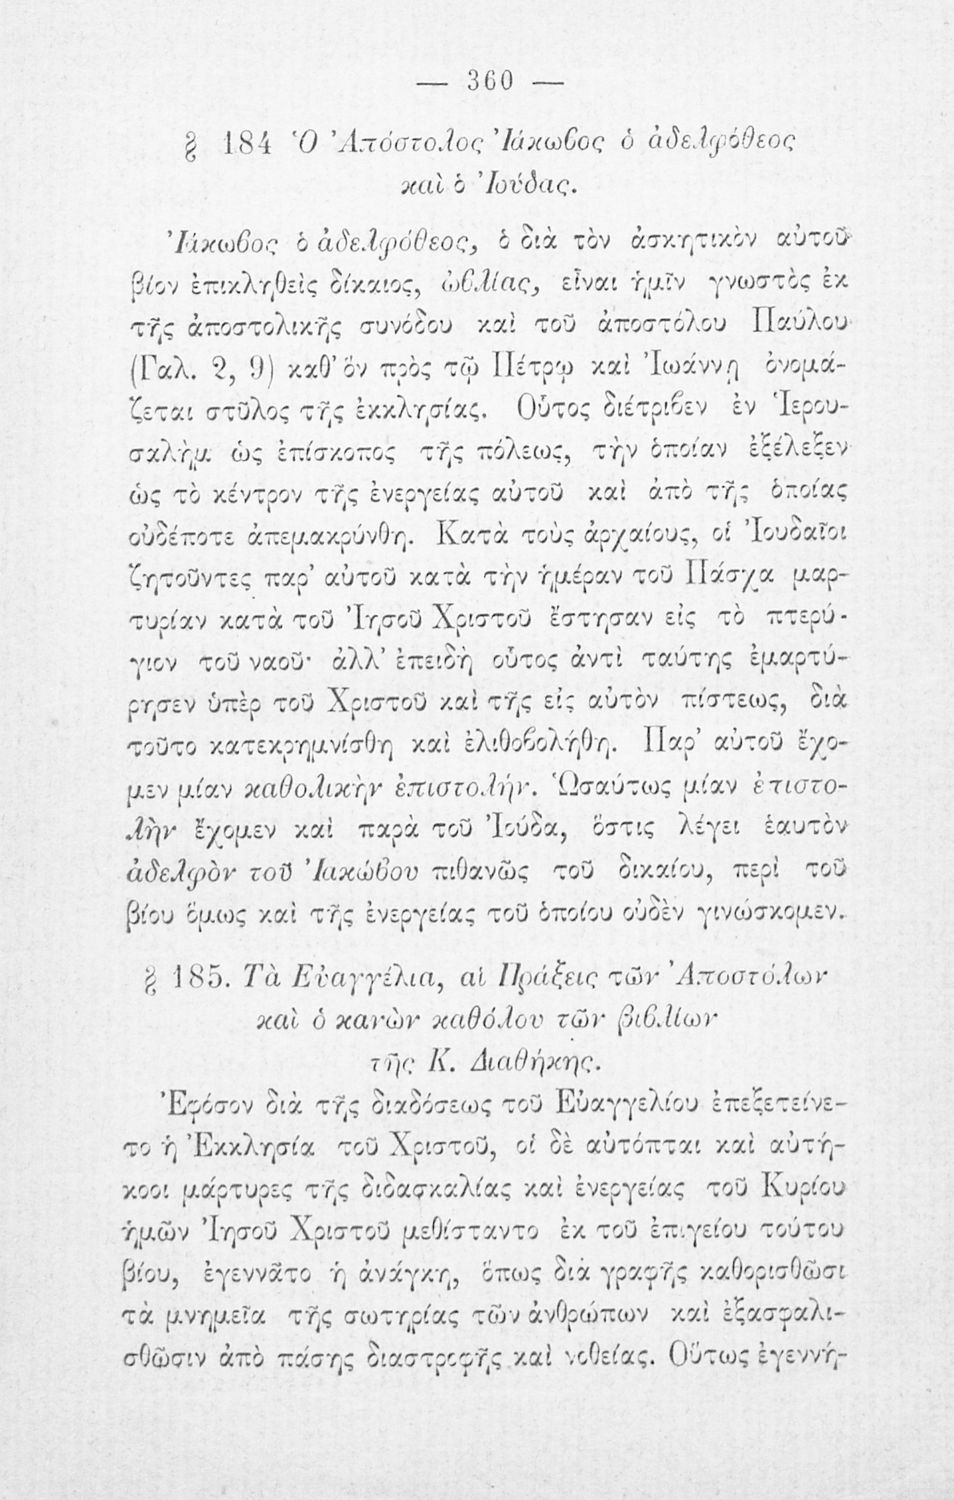 — 360 —
§ 184 Ὁ Ἀπόστολος Ἰάκωβος ὁ ἀδελφόθεος
καὶ ὁ Ἰούδας.
Ἰάκωβος ὁ ἀδελφόθεος, ὁ διὰ τὸν ἀσκητικὸν αὐτοῦ
βίον ἐπικληθεὶς δίκαιος, ὠβλίας, εἶναι ἡμῖν γνωστὸς ἐκ
τῆς ἀποστολικῆς συνόδου καὶ τοῦ ἀποστόλου Παύλου
(Γαλ. 2, 9) καθ’ ὃν πρὸς τῷ Πέτρῳ καὶ Ἰωάννῃ ὀνομά-
ζεται στῦλος τῆς ἐκκλησίας. Οὗτος διέτριβεν ἐν Ἱερου-
σαλὴμ ὡς ἐπίσκοπος τῆς πόλεως, τὴν ὁποίαν ἐξέλεξεν
ὡς τὸ κέντρον τῆς ἐνεργείας αὐτοῦ καὶ ἀπὸ τῆς ὁποίας
οὐδέποτε ἀπεμακρύνθη. Κατὰ τοὺς ἀρχαίους, οἱ Ἰουδαῖοι
ζητοῦντες παρ’ αὐτοῦ κατὰ τὴν ἡμέραν τοῦ Πάσχα μαρ-
τυρίαν κατὰ τοῦ Ἰησοῦ Χριστοῦ ἔστησαν εἰς τὸ πτερύ-
γιον τοῦ ναοῦ· ἀλλ’ ἐπειδὴ οὗτος ἀντὶ ταύτης ἐμαρτύ-
ρησεν ὑπὲρ τοῦ Χριστοῦ καὶ τῆς εἰς αὐτὸν πίστεως, διὰ
τοῦτο κατεκρημνίσθη καὶ ἐλιθοβολήθη. Παρ’ αὐτοῦ ἔχο-
μεν μίαν καθολικὴν ἐπιστολήν. Ὡσαύτως μίαν ἐπιστο-
λὴν ἔχομεν καὶ παρὰ τοῦ Ἰούδα, ὅστις λέγει ἑαυτὸν
ἀδελφὸν τοῦ Ἰακώβου πιθανῶς τοῦ δικαίου, περὶ τοῦ
βίου ὅμως καὶ τῆς ἐνεργείας τοῦ ὁποίου οὐδὲν γινώσκομεν.
§ 185. Τὰ Εὐαγγέλια, αἱ Πράξεις τῶν Ἀποστόλων
καὶ ὁ κανὼν καθόλου τῶν βιβλίων
τῆς Κ. Διαθήκης.
Ἐφόσον διὰ τῆς διαδόσεως τοῦ Εὐαγγελίου ἐπεξετείνε-
το ἡ Ἐκκλησία τοῦ Χριστοῦ, οἱ δὲ αὐτόπται καὶ αὐτή-
κοοι μάρτυρες τῆς διδασκαλίας καὶ ἐνεργείας τοῦ Κυρίου
ἡμῶν Ἰησοῦ Χριστοῦ μεθίσταντο ἐκ τοῦ ἐπιγείου τούτου
βίου, ἐγεννᾶτο ἡ ἀνάγκη, ὅπως διὰ γραφῆς καθορισθῶσι
τὰ μνημεῖα τῆς σωτηρίας τῶν ἀνθρώπων καὶ ἐξασφαλι-
σθῶσιν ἀπὸ πάσης διαστροφῆς καὶ νοθείας. Οὕτως ἐγεννή-